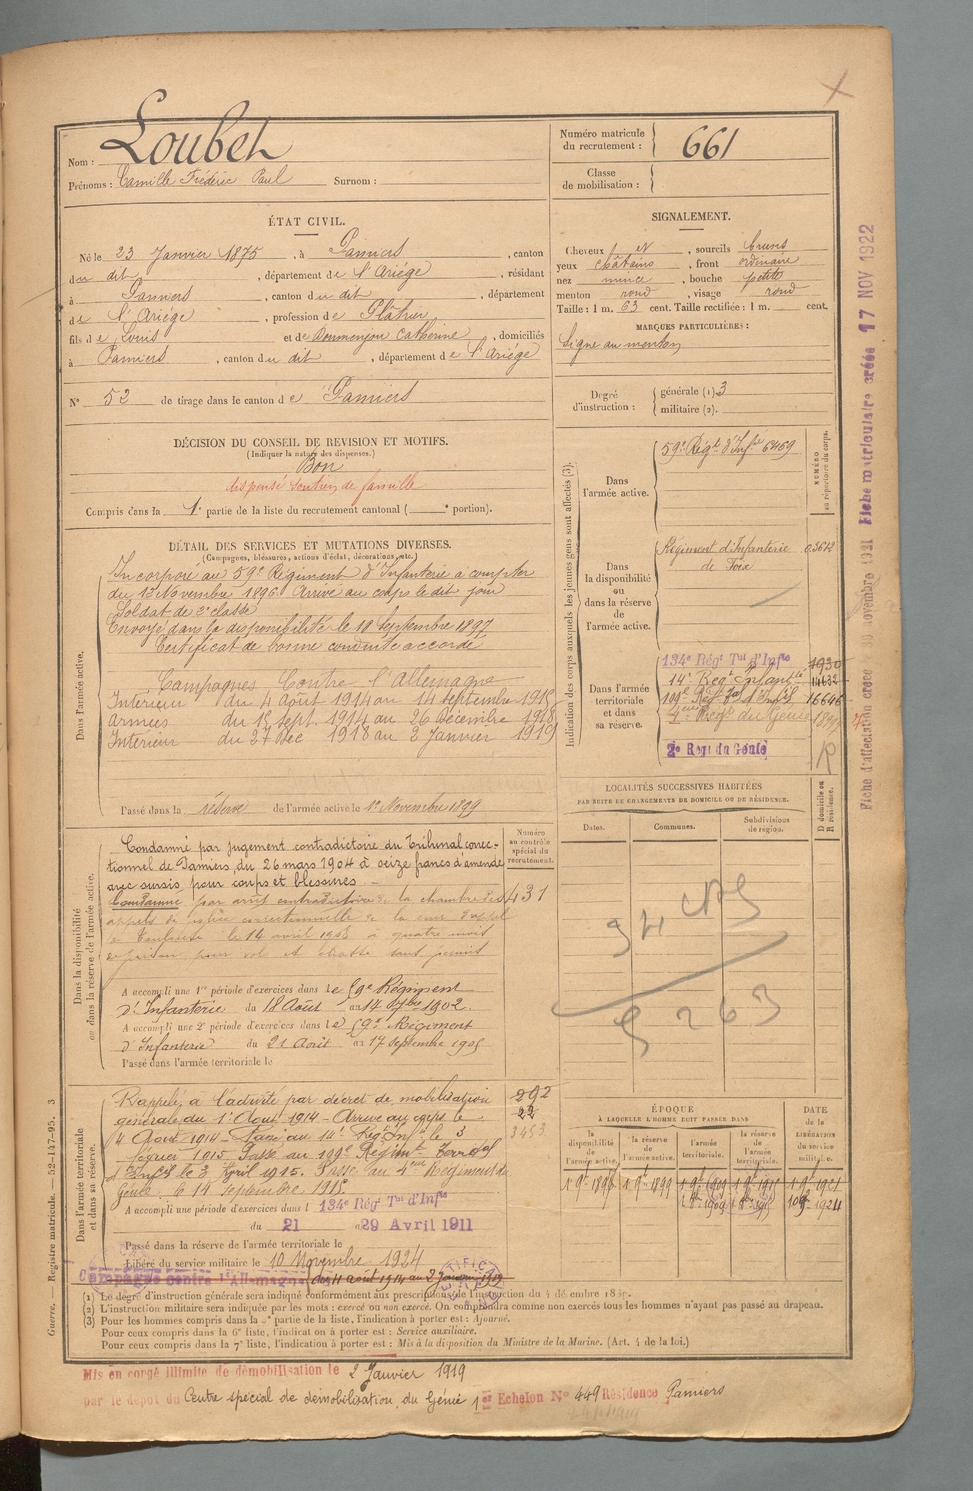 Nom : Loubet
Prénoms : Camille Frédéric Paul Surnom :
Numéro matricule du recrutement : 661
Classe de mobilisation :
ÉTAT CIVIL.
Né le 23 Janvier 1875, à Pamiers, canton
du dit, département de l'Ariége, résidant
à Pamiers, canton du dit, département
de l'Ariége, profession de Plâtrier
fils de Louis et de Doumenjou Catherine, domiciliés
à Pamiers, canton du dit, département de l'Ariége
N° 52 de tirage dans le canton de Pamiers
SIGNALEMENT.
Cheveux, sourcils bruns
yeux châtains, front ordinaire
nez mince, bouche petite
menton rond, visage rond
Taille : 1 m. 63 cent. Taille rectifiée : 1 m. cent.
MARQUES PARTICULIÈRES :
Signe au menton
Degré d'instruction : générale (1) 3
militaire (2).
DÉCISION DU CONSEIL DE REVISION ET MOTIFS.
(Indiquer la nature des dispenses.)
Bon
dispensé soutien de famille
Compris dans la 1e partie de la liste du recrutement cantonal ( e portion).
DÉTAIL DES SERVICES ET MUTATIONS DIVERSES.
(Campagnes, blessures, actions d'éclat, décorations, etc.)
Dans l'armée active.
Incorporé au 59e Régiment d'Infanterie à compter
du 12 Novembre 1896. Arrivé au corps le dit jour
Soldat de 2e classe
Envoyé dans la disponibilité le 18 Septembre 1897
Certificat de bonne conduite accordé
Campagnes Contre l'Allemagne
Intérieur du 4 Août 1914 au 14 septembre 1915
Armées du 15 sept. 1914 au 26 Décembre 1918
Intérieur du 27 Dec 1918 au 2 Janvier 1919
Passé dans la réserve de l'armée active le 1er Novembre 1899
Indication des corps auxquels les jeunes gens sont affectés (3).
NUMÉRO au répertoire du corps.
Dans l'armée active.
59e Régt d'Infie 6469
Dans la disponibilité ou dans la réserve de l'armée active.
Régiment d'Infanterie 05672
de Foix
Dans l'armée territoriale et dans sa réserve.
134e Régt Tal d'Infie 7930
14e Regt Infantie 14632
109e Régt Tal d'Infie 16646
4eme Regt du Genie 1897
2e Regt du Génie R
LOCALITÉS SUCCESSIVES HABITÉES
PAR SUITE DE CHANGEMENTS DE DOMICILE OU DE RÉSIDENCE.
Dates. Communes. Subdivisions de région. D domicile ou R résidence.
Dans la disponibilité ou dans la réserve de l'armée active.
Numéro au contrôle spécial du recrutement.
Condamné par jugement contradictoire du Tribunal correc-
tionnel de Pamiers, du 26 mars 1904 à seize francs d'amende
avec sursis, pour coups et blessures.
Condamné par arrêt contradictoire de la chambre des 431
appels de police correctionnelle de la cour d'appel
de Toulouse le 14 avril 1905 à quatre mois
de prison pour vol et chasse sans permis
A accompli une 1re période d'exercices dans le 59e Régiment
d'Infanterie du 18 Août au 14 7bre 1902.
A accompli une 2e période d'exercices dans le 59e Régiment
d'Infanterie du 21 Août au 17 septembre 1905
Passé dans l'armée territoriale le
Dans l'armée territoriale et dans sa réserve.
Rappelé à l'activité par décret de mobilisation 292
générale du 1er Août 1914 - Arrivé au corps le 22
4 Août 1914 - Passé au 14e Régt Infie le 3 3453
février 1915. Passé au 109e Régiment Territal
d'Infie le 3 Avril 1915. Passé au 4eme Régiment du
Génie, le 14 septembre 1915
A accompli une période d'exercices dans l 134e Régt Tal d'Infie
du 21 au 29 Avril 1911
Passé dans la réserve de l'armée territoriale le
Libéré du service militaire le 10 Novembre 1924
Campagne contre l'Allemagne des 4 août 1914 au 2 Janvier 1919
ÉPOQUE
À LAQUELLE L'HOMME DOIT PASSER DANS
la disponibilité de l'armée active. la réserve de l'armée active. l'armée territoriale. la réserve de l'armée territoriale.
DATE de la LIBÉRATION DU SERVICE militaire.
1 9bre 1896 1 9bre 1899 1 9bre 1909 1 9bre 1915 1 9bre 1921
(1) Le degré d'instruction générale sera indiqué conformément aux prescriptions du 4 décembre 1889.
(2) L'instruction militaire sera indiquée par les mots : exercé ou non exercé. On comprendra comme non exercés tous les hommes n'ayant pas passé au drapeau.
(3) Pour les hommes compris dans la partie de la liste, l'indication à porter est : Ajourné.
Pour ceux compris dans la 6e liste, l'indication à porter est : Service auxiliaire.
Pour ceux compris dans la 7e liste, l'indication à porter est : Mis à la disposition du Ministre de la Marine. (Art. 4 de la loi.)
Mis en congé illimité de démobilisation le 2 Janvier 1919
par le dépôt du Centre spécial de démobilisation du Génie 1er Echelon N° 449 Résidence Pamiers
Guerre. — Registre matricule. — 52-147-95. 3
Fiche d'affectation créée 30 novembre 1921 Fiche matriculaire créée 17 NOV 1922